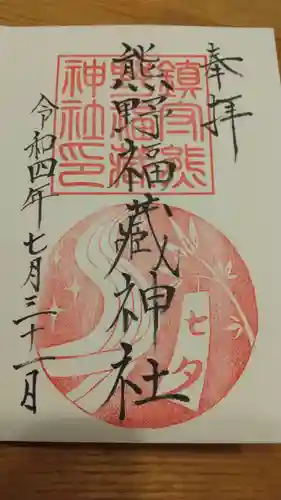 奉拝
熊野福藏神社
令和四年七月三十一日
鎮守熊
野福藏
神社印
七夕